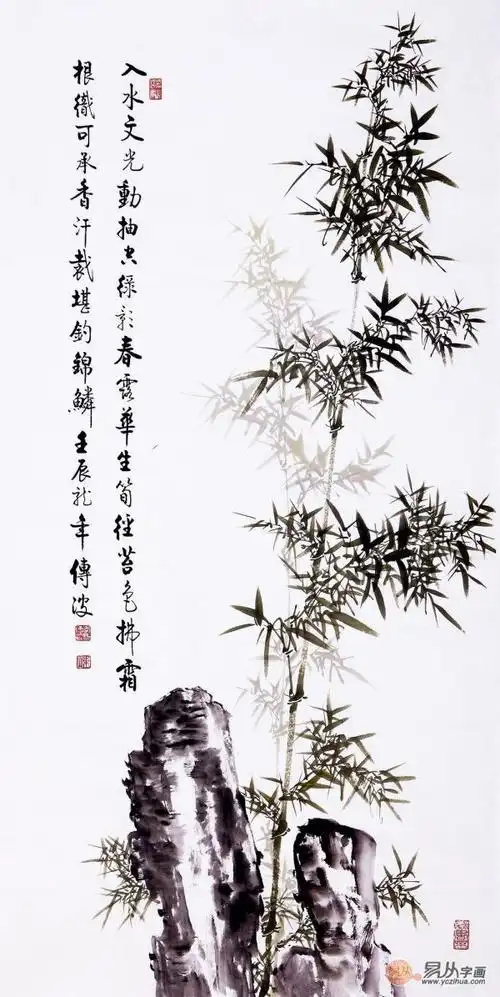 入水文光動抽空綠影春露華生筍徑苔色拂霜
根織可承香汗裁堪釣錦鱗壬辰龍年傳波
易从字画
www.yczihua.com